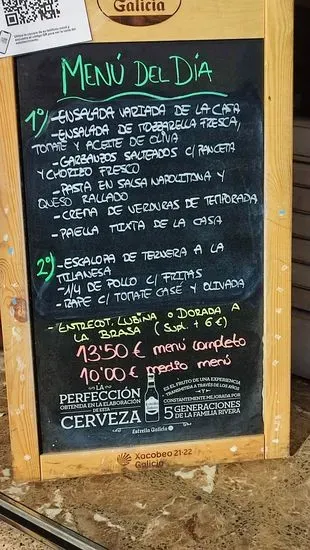 Galicia
MENÚ DEL DÍA
1º) - ENSALADA VARIADA DE LA CASA
- ENSALADA DE MOZZARELLA FRESCA,
TOMATE Y ACEITE DE OLIVA
- GARBANZOS SALTEADOS C/ PANCETA
Y CHORIZO FRESCO
- PASTA EN SALSA NAPOLITANA Y
QUESO RALLADO
- CREMA DE VERDURAS DE TEMPORADA
- PAELLA MIXTA (DE LA CASA
2º) - ESCALOPA DE TERNERA A LA
MILANESA
- 1/4 DE POLLO C/ FRITAS
- RAPE C/ TOMATE CASÉ Y OLIVADA
- ENTRECOT, LUBINA O DORADA A
LA BRASA (Supl. + 6 €)
13'50 € menú completo
10'00 € medio menú
LA
PERFECCIÓN
OBTENIDA EN LA ELABORACIÓN
DE ESTA
CERVEZA
ES EL FRUTO DE UNA EXPERIENCIA
TRANSMITIDA A TRAVÉS DE LOS AÑOS
Y
CONSTANTEMENTE MEJORADA POR
5 GENERACIONES
DE LA FAMILIA RIVERA
Estrella Galicia
Xacobeo 21·22
Galicia